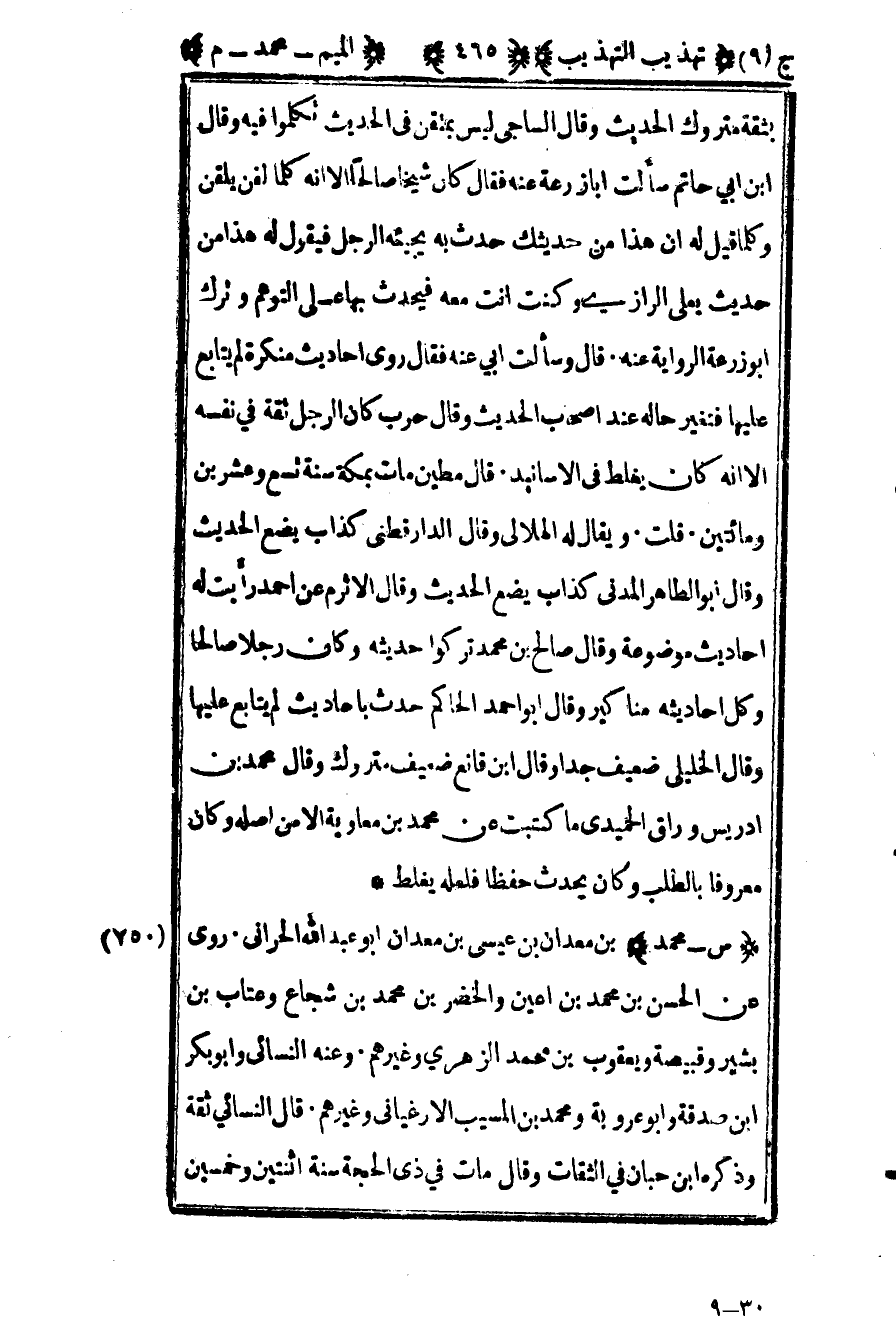 ج (٩) ﴿ تهذيب التهذيب ﴾ ﴿ ٤٦٥ ﴾ ﴿ الميم ـ محمد ـ م ﴾
بثقة متروك الحديث وقال الساجى ليس بمتقن فى الحديث تكلموا فيه وقال
ابن ابي حاتم سألت ابا زرعة عنه فقال كان شيخا صالحا الا انه كلما لقن يلقن
وكلما قيل له ان هذا من حديثك حدث به يجيئه الرجل فيقول له هذا من
حديث يعلى الرازي وكنت انت معه فيحدث بها على التوهم و ترك
ابو زرعة الرواية عنه · قال وسألت ابي عنه فقال روى احاديث منكرة لم يتابع
عليها فتغير حاله عند اصحاب الحديث وقال حرب كان الرجل ثقة في نفسه
الا انه كان يغلط فى الاسانيد · قال مطين مات بمكة سنة تسع وعشرين
ومائتين · قلت · ويقال له الهلالى وقال الدارقطنى كذاب يضع الحديث
وقال ابو الطاهر المدنى كذاب يضع الحديث وقال الاثرم عن احمد رأيت له
احاديث موضوعة وقال صالح بن محمد تركوا حديثه وكان رجلا صالحا
وكل احاديثه مناكير وقال ابو احمد الحاكم حدث باحاديث لم يتابع عليها
وقال الخليلى ضعيف جدا وقال ابن قانع ضعيف متروك وقال محمد بن
ادريس وراق الحميدى ما كتبت عن محمد بن معاوية الا من اصله وكان
معروفا بالطلب وكان يحدث حفظا فلعله يغلط *
﴿ س ـ محمد ﴾ بن معدان بن عيسى بن معدان ابو عبد الله الحرانى · روى (٧٥٠)
عن الحسن بن محمد بن اعين والخضر بن محمد بن شجاع وعتاب بن
بشير وقبيصة ويعقوب بن محمد الزهري وغيرهم · وعنه النسائى وابو بكر
ابن صدقة وابو عروبة ومحمد بن المسيب الارغيانى وغيرهم · قال النسائي ثقة
وذكره ابن حبان في الثقات وقال مات في ذى الحجة سنة اثنتين وخمسين
٣٠ـ٩